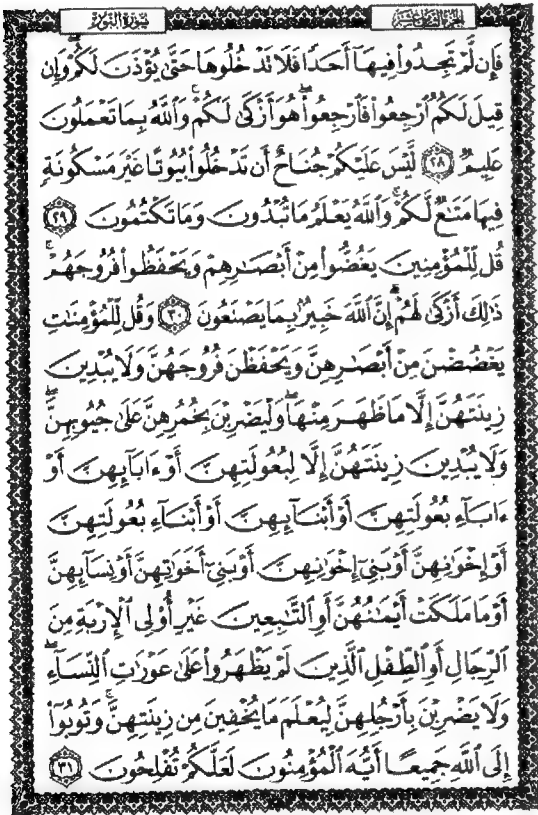 سورة النور الجزء الثامن عشر
فَإِن لَّمْ تَجِدُوا۟ فِيهَآ أَحَدًا فَلَا تَدْخُلُوهَا حَتَّىٰ يُؤْذَنَ لَكُمْ ۖ وَإِن
قِيلَ لَكُمُ ٱرْجِعُوا۟ فَٱرْجِعُوا۟ ۖ هُوَ أَزْكَىٰ لَكُمْ ۚ وَٱللَّهُ بِمَا تَعْمَلُونَ
عَلِيمٌ ٢٨ لَّيْسَ عَلَيْكُمْ جُنَاحٌ أَن تَدْخُلُوا۟ بُيُوتًا غَيْرَ مَسْكُونَةٍ
فِيهَا مَتَٰعٌ لَّكُمْ ۚ وَٱللَّهُ يَعْلَمُ مَا تُبْدُونَ وَمَا تَكْتُمُونَ ٢٩
قُل لِّلْمُؤْمِنِينَ يَغُضُّوا۟ مِنْ أَبْصَٰرِهِمْ وَيَحْفَظُوا۟ فُرُوجَهُمْ ۚ
ذَٰلِكَ أَزْكَىٰ لَهُمْ ۗ إِنَّ ٱللَّهَ خَبِيرٌۢ بِمَا يَصْنَعُونَ ٣٠ وَقُل لِّلْمُؤْمِنَٰتِ
يَغْضُضْنَ مِنْ أَبْصَٰرِهِنَّ وَيَحْفَظْنَ فُرُوجَهُنَّ وَلَا يُبْدِينَ
زِينَتَهُنَّ إِلَّا مَا ظَهَرَ مِنْهَا ۖ وَلْيَضْرِبْنَ بِخُمُرِهِنَّ عَلَىٰ جُيُوبِهِنَّ ۖ
وَلَا يُبْدِينَ زِينَتَهُنَّ إِلَّا لِبُعُولَتِهِنَّ أَوْ ءَابَآئِهِنَّ أَوْ
ءَابَآءِ بُعُولَتِهِنَّ أَوْ أَبْنَآئِهِنَّ أَوْ أَبْنَآءِ بُعُولَتِهِنَّ
أَوْ إِخْوَٰنِهِنَّ أَوْ بَنِىٓ إِخْوَٰنِهِنَّ أَوْ بَنِىٓ أَخَوَٰتِهِنَّ أَوْ نِسَآئِهِنَّ
أَوْ مَا مَلَكَتْ أَيْمَٰنُهُنَّ أَوِ ٱلتَّٰبِعِينَ غَيْرِ أُو۟لِى ٱلْإِرْبَةِ مِنَ
ٱلرِّجَالِ أَوِ ٱلطِّفْلِ ٱلَّذِينَ لَمْ يَظْهَرُوا۟ عَلَىٰ عَوْرَٰتِ ٱلنِّسَآءِ ۖ
وَلَا يَضْرِبْنَ بِأَرْجُلِهِنَّ لِيُعْلَمَ مَا يُخْفِينَ مِن زِينَتِهِنَّ ۚ وَتُوبُوٓا۟
إِلَى ٱللَّهِ جَمِيعًا أَيُّهَ ٱلْمُؤْمِنُونَ لَعَلَّكُمْ تُفْلِحُونَ ٣١